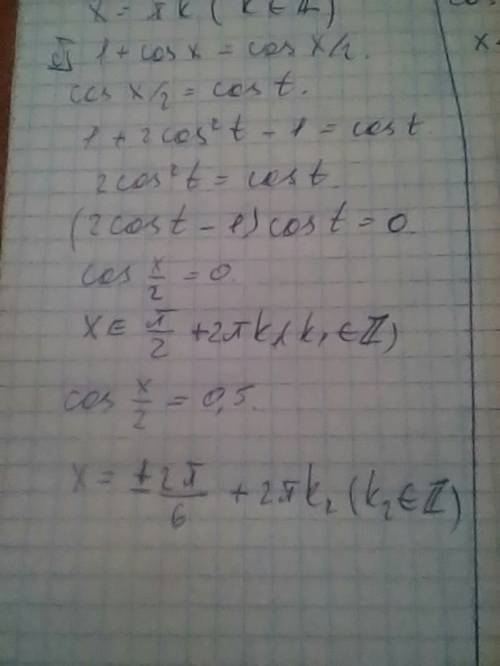 x = πk (k∈ℤ)
1 + cos x = cos x/2.
cos x/2 = cos t.
1 + 2cos²t - 1 = cos t
2cos²t = cos t.
(2cos t - 1) cos t = 0.
cos x/2 = 0.
x ∈ π/2 + 2πk₁ (k₁ ∈ ℤ)
cos x/2 = 0,5.
x = ± 2π/6 + 2πk₂ (k₂ ∈ ℤ)